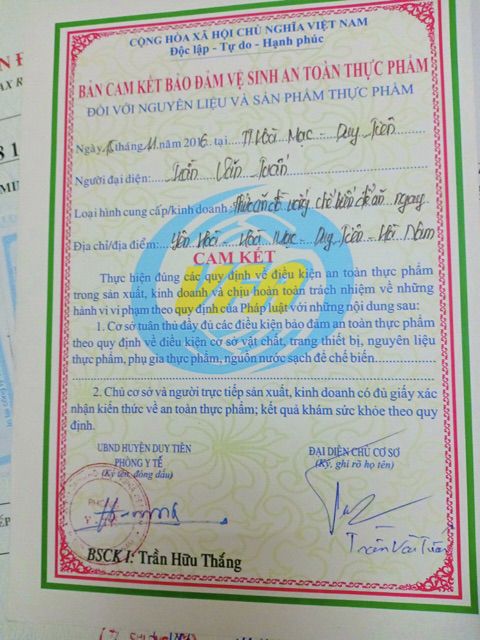 CỘNG HÒA XÃ HỘI CHỦ NGHĨA VIỆT NAM
Độc lập - Tự do - Hạnh phúc
BẢN CAM KẾT BẢO ĐẢM VỆ SINH AN TOÀN THỰC PHẨM
ĐỐI VỚI NGUYÊN LIỆU VÀ SẢN PHẨM THỰC PHẨM
Ngày tháng 11 năm 2016 tại TT Hòa Mạc - Duy Tiên
Người đại diện: Trần Văn Tuấn
Loại hình cung cấp/kinh doanh: Thức ăn đồ uống chế biến để ăn ngay
Địa chỉ/địa điểm: Yên Hòa - Hòa Mạc - Duy Tiên - Hà Nam
CAM KẾT
Thực hiện đúng các quy định về điều kiện an toàn thực phẩm
trong sản xuất, kinh doanh và chịu hoàn toàn trách nhiệm về những
hành vi vi phạm theo quy định của Pháp luật với những nội dung sau:
1. Cơ sở tuân thủ đầy đủ các điều kiện bảo đảm an toàn thực phẩm
theo quy định về điều kiện cơ sở vật chất, trang thiết bị, nguyên liệu
thực phẩm, phụ gia thực phẩm, nguồn nước sạch để chế biến
2. Chủ cơ sở và người trực tiếp sản xuất, kinh doanh có đủ giấy xác
nhận kiến thức về an toàn thực phẩm; kết quả khám sức khỏe theo quy
định.
UBND HUYỆN DUY TIÊN
PHÒNG Y TẾ
(Ký tên, đóng dấu)
ĐẠI DIỆN CHỦ CƠ SỞ
(Ký, ghi rõ họ tên)
BSCK I: Trần Hữu Thắng
Trần Văn Tuấn